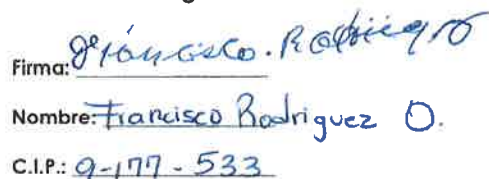 Firma: Francisco. Rodriguez O
Nombre: Francisco Rodriguez O.
C.I.P.: 9-177-533